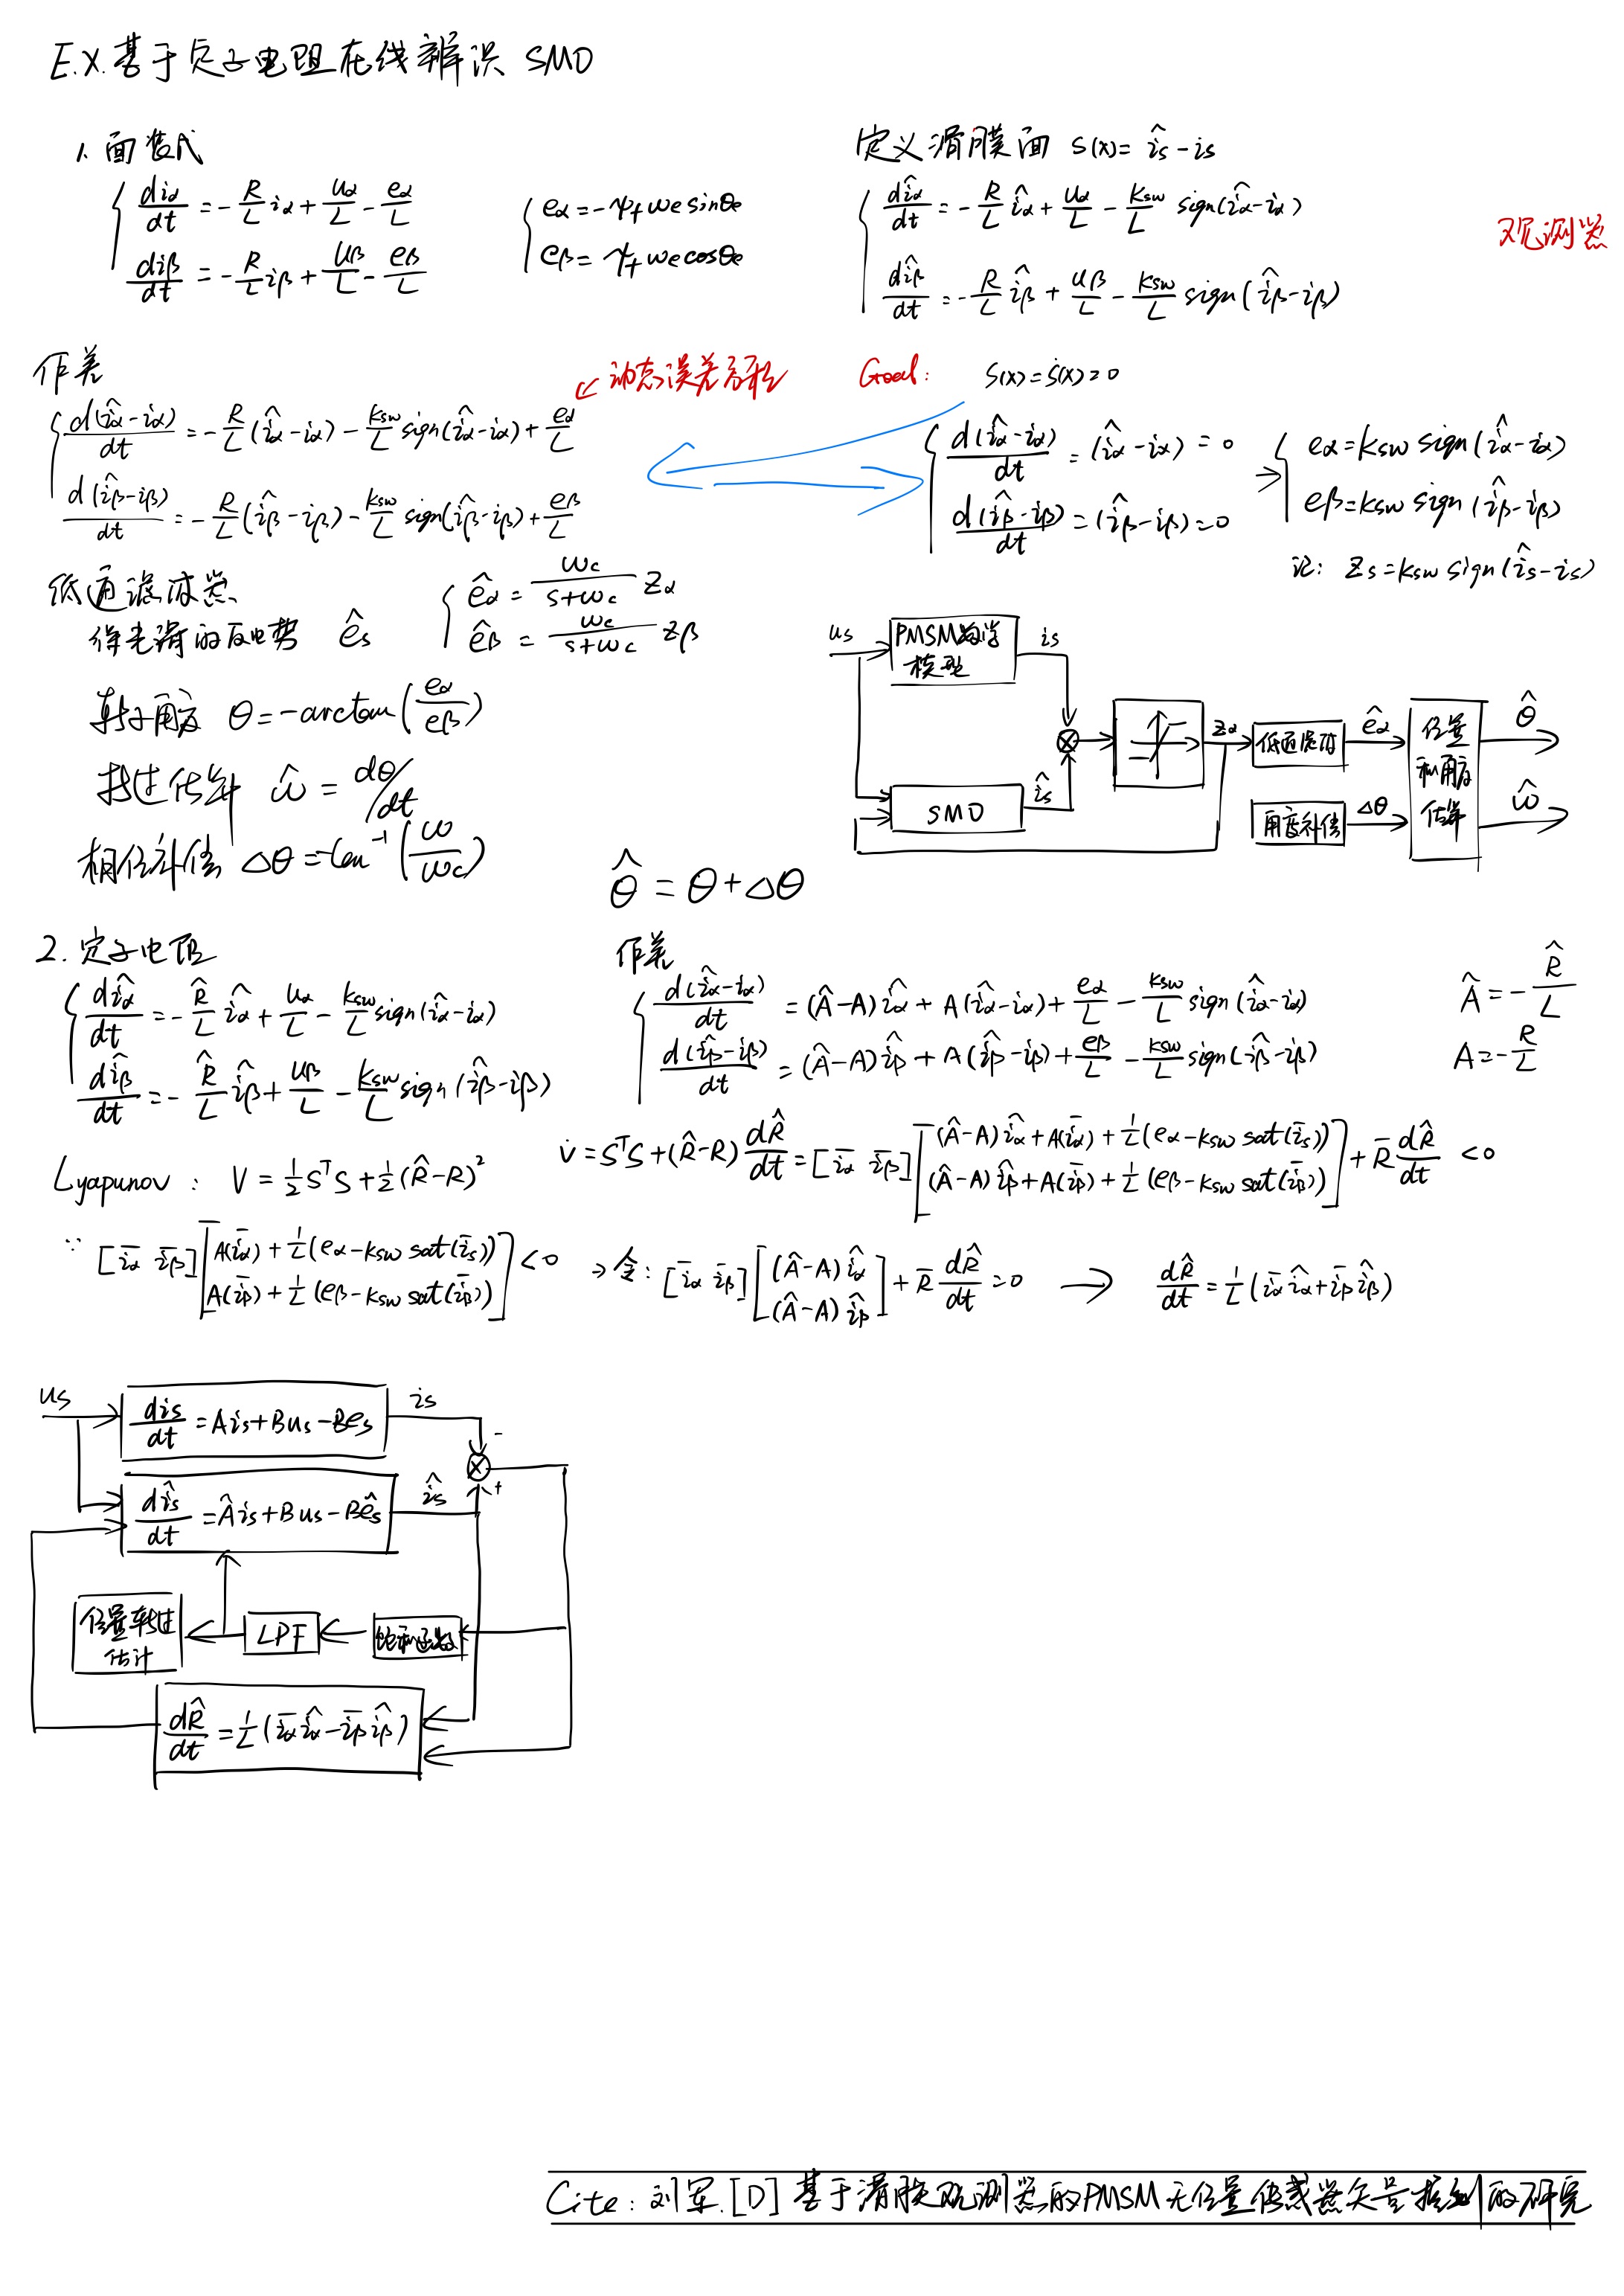 E.X.基于定子电阻在线辨识 SMO
1. 面装式
diα/dt = -R/L iα + uα/L - eα/L
diβ/dt = -R/L iβ + uβ/L - eβ/L
eα = -ψf ωe sinθe
eβ = ψf ωe cosθe
定义滑膜面 S(x) = îs - is
dîα/dt = -R/L îα + uα/L - Ksw/L sign(îα - iα)
dîβ/dt = -R/L îβ + uβ/L - Ksw/L sign(îβ - iβ)
观测器
作差
d(îα - iα)/dt = -R/L (îα - iα) - Ksw/L sign(îα - iα) + eα/L
d(îβ - iβ)/dt = -R/L (îβ - iβ) - Ksw/L sign(îβ - iβ) + eβ/L
动态误差方程
Goal: S(x) = Ṡ(x) = 0
d(îα - iα)/dt = (îα - iα) = 0
d(îβ - iβ)/dt = (îβ - iβ) = 0
→ eα = Ksw sign(îα - iα)
eβ = Ksw sign(îβ - iβ)
记: Zs = Ksw sign(îs - is)
低通滤波器
得光滑的反电势 ês
êα = ωc/(s+ωc) Zα
êβ = ωc/(s+ωc) Zβ
转子角度 θ = -arctan(eα/eβ)
转速估算 ω̂ = dθ/dt
相位补偿 Δθ = tan⁻¹(ω/ωc)
θ̂ = θ + Δθ
us
PMSM数学模型
is
SMO
îs
Zα
低通滤波
êα
角度补偿
Δθ
位置和角度估算
θ̂
ω̂
2. 定子电阻
dîα/dt = -R̂/L îα + uα/L - Ksw/L sign(îα - iα)
dîβ/dt = -R̂/L îβ + uβ/L - Ksw/L sign(îβ - iβ)
作差
d(îα - iα)/dt = (Â-A)îα + A(îα - iα) + eα/L - Ksw/L sign(îα - iα)
d(îβ - iβ)/dt = (Â-A)îβ + A(îβ - iβ) + eβ/L - Ksw/L sign(îβ - iβ)
Â = -R̂/L
A = -R/L
Lyapunov: V = ½SᵀS + ½(R̂-R)²
V̇ = SᵀS + (R̂-R) dR̂/dt = [īα īβ] [(Â-A)îα + A(īα) + 1/L (eα - Ksw sat(īs)); (Â-A)îβ + A(īβ) + 1/L (eβ - Ksw sat(īβ))] + R̄ dR̂/dt < 0
∵ [īα īβ] [A(īα) + 1/L (eα - Ksw sat(īs)); A(īβ) + 1/L (eβ - Ksw sat(īβ))] < 0
→ 令: [īα īβ] [(Â-A)îα; (Â-A)îβ] + R̄ dR̂/dt = 0 → dR̂/dt = 1/L (īα îα + īβ îβ)
us
dis/dt = Ais + Bus - Bes
is
-
+
dîs/dt = Âis + Bus - Bês
îs
位置转速估计
LPF
饱和函数
dR̂/dt = 1/L (īα îα - īβ îβ)
Cite: 刘军.[D] 基于滑膜观测器的PMSM无位置传感器矢量控制的研究